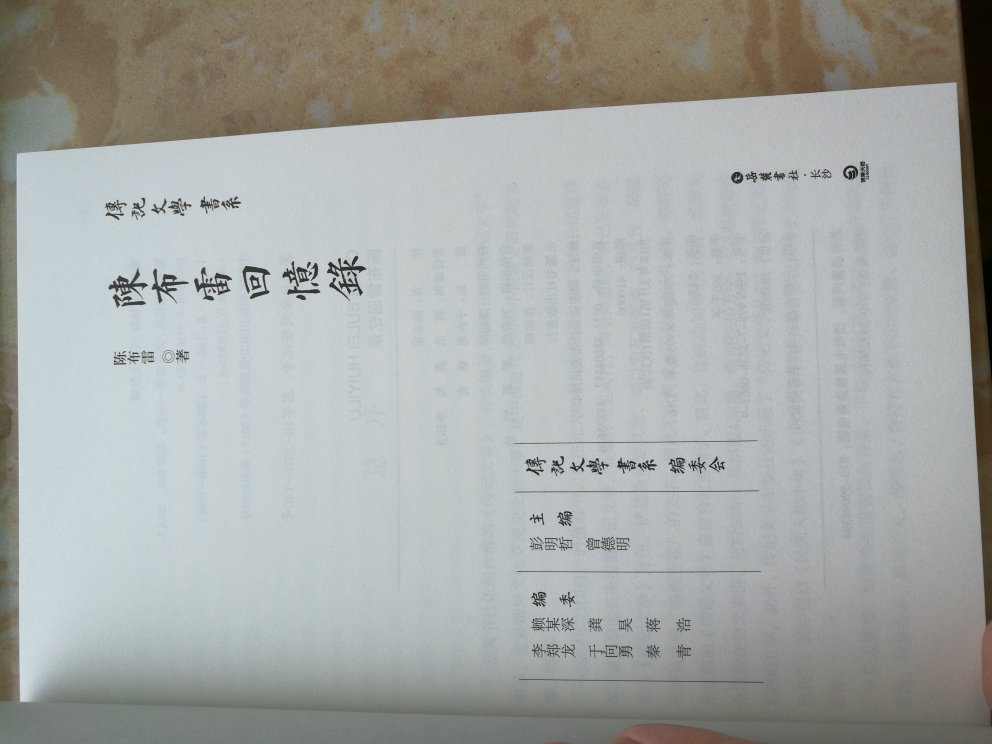 傳記文學書系
陳布雷回憶錄
陈布雷◎著
傳記文學書系 编委会
主编
彭明哲 曾德明
编委
赖某深 龚昊 蒋浩
李郑龙 于向勇 秦青
岳麓書社·长沙